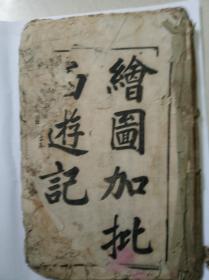 繪圖加批
西遊記